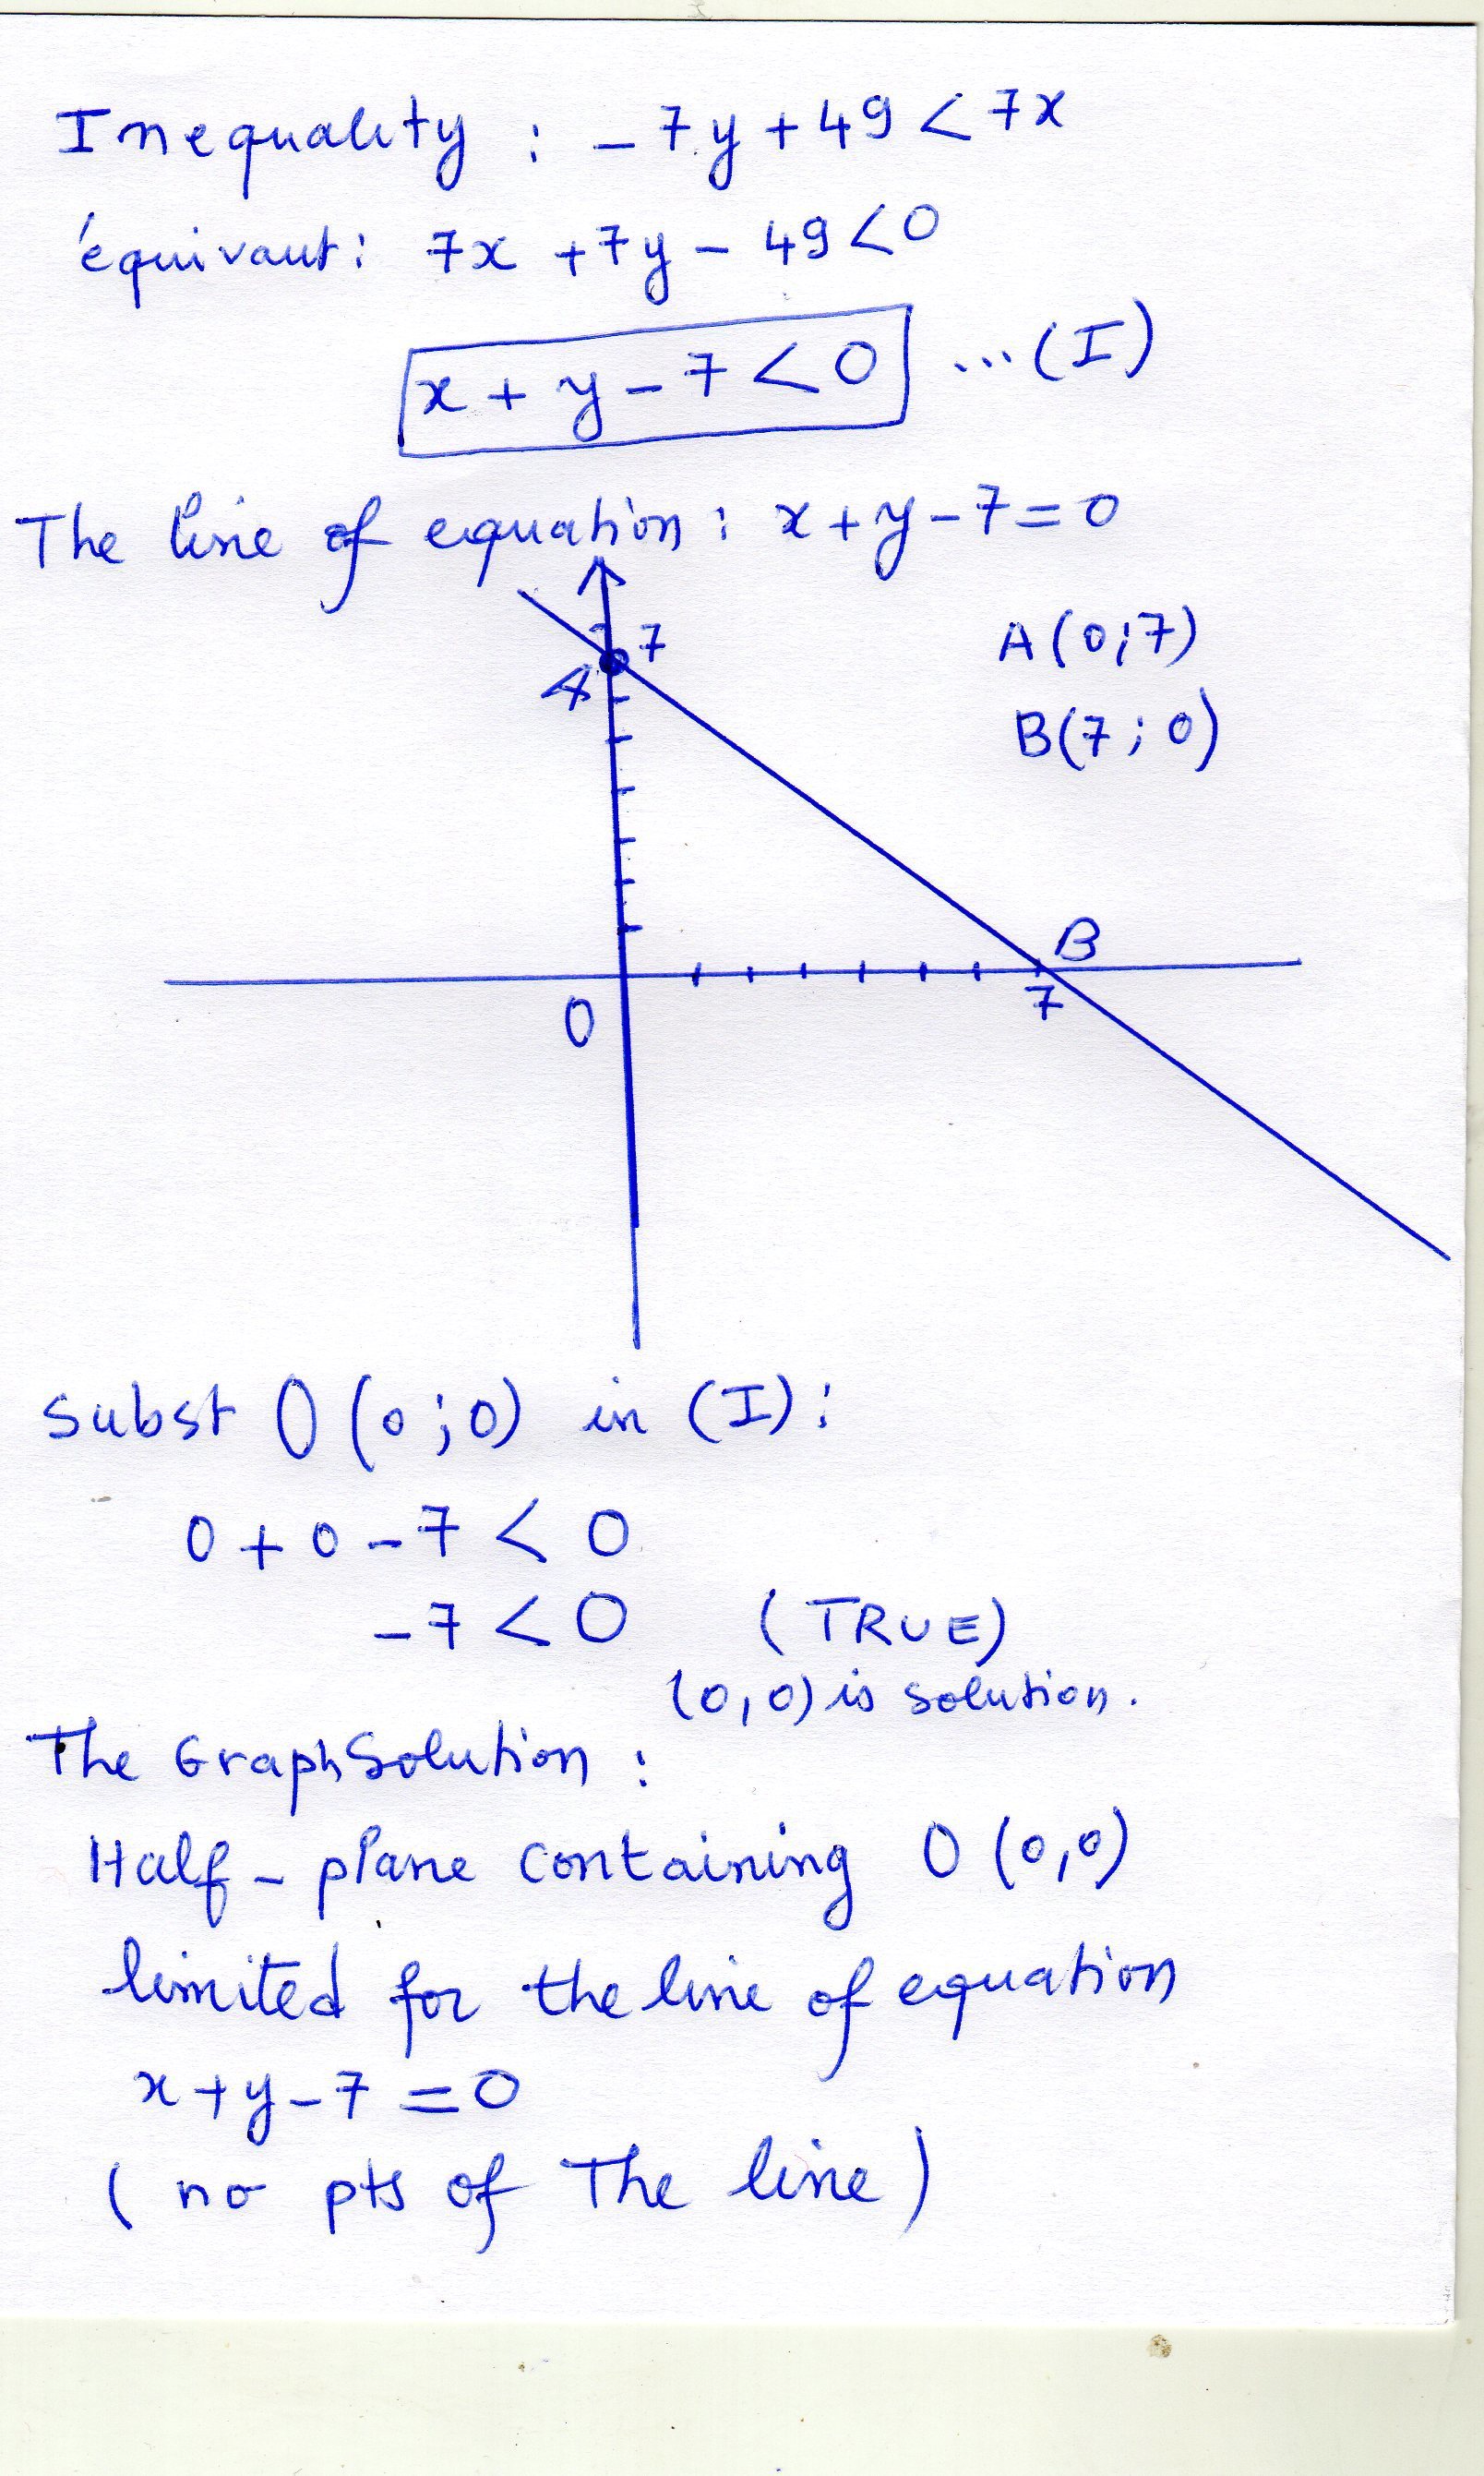 Inequality : - 7y + 49 < 7x
équivaut: 7x + 7y - 49 < 0
x + y - 7 < 0 ... (I)
The line of equation: x + y - 7 = 0
A(0;7)
B(7;0)
7
A
B
0
7
Subst O (0;0) in (I):
0 + 0 - 7 < 0
- 7 < 0 (TRUE)
(0,0) is solution.
The Graph Solution :
Half - plane containing O (0,0)
limited for the line of equation
x + y - 7 = 0
( no pts of The line )